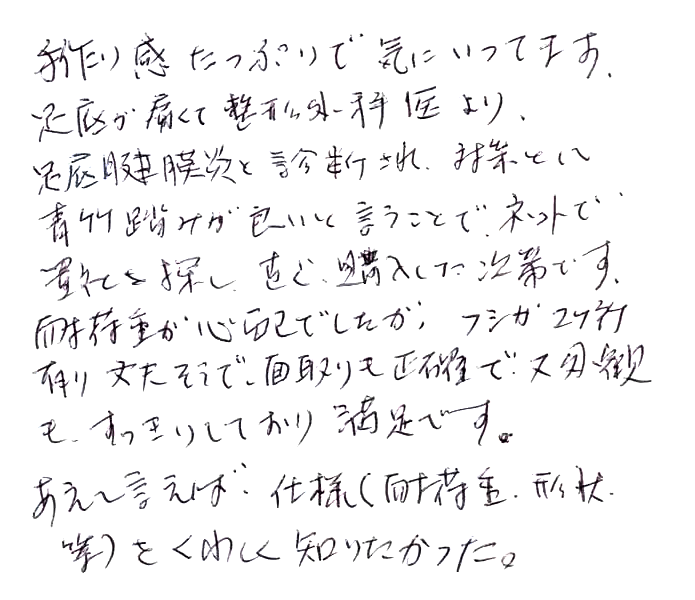 手作り感たっぷりで気にいってます、
足底が痛くて整形外科医より、
足底腱膜炎と診断され、対策として
青竹踏みが良いと言うことで、ネットで
貴社を探し、直ぐ、購入した次第です、
耐荷重が心配でしたが、フシが2ヶ所
有り丈夫そうで、面取りも正確で、又外観
も、すっきりしており満足です。
あえて言えば、仕様(耐荷重、形状、
等)をくわしく知りたかった。